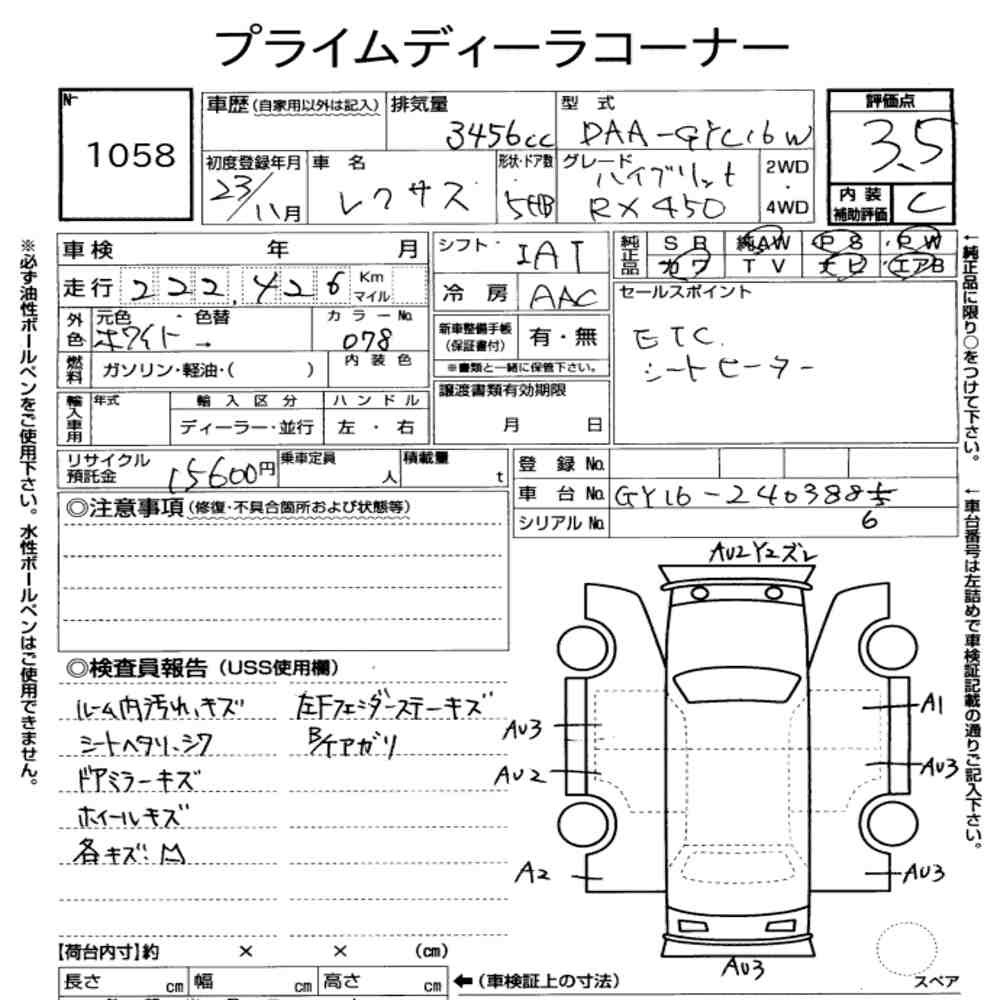 プライムディーラコーナー
№
1058
車歴(自家用以外は記入)
排気量
3456cc
型式
DAA-GYL16W
評価点
3.5
初度登録年月
23/11月
車名
レクサス
形状・ドア数
5HB
グレード
ハイブリット
RX450
2WD
・
4WD
内装
補助評価
C
車検 年 月
走行 222,426 Km
マイル
外色
元色・色替
ホワイト →
カラーNo.
078
燃料
ガソリン・軽油・( )
内装色
輸入車用
年式
輸入区分
ディーラー・並行
ハンドル
左・右
シフト・ IAT
冷房 AAC
新車整備手帳
(保証書付)
有・無
※書類と一緒に保管下さい。
譲渡書類有効期限
月 日
純正品
SR 純AW PS PW
カワ TV ナビ エアB
セールスポイント
ETC.
シートヒーター
リサイクル
預託金
15600円
乗車定員
人
積載量
t
登録No.
車台No. GYL16-2403885
6
シリアルNo.
◎注意事項(修復・不具合箇所および状態等)
◎検査員報告(USS使用欄)
ルーム内汚れ、キズ
シートヘタリ、シワ
ドアミラーキズ
ホイールキズ
各キズ凹
左Fフェンダーステーキズ
B/ケアガリ
AU2Y2ズレ
AU3
AU2
A2
A1
AU3
AU3
AU3
スペア
【荷台内寸】約 × × (cm)
長さ cm 幅 cm 高さ cm
←(車検証上の寸法)
※必ず油性ボールペンをご使用下さい。水性ボールペンはご使用できません。
←純正品に限り○をつけて下さい。
←車台番号は左詰めで車検証記載の通りご記入下さい。